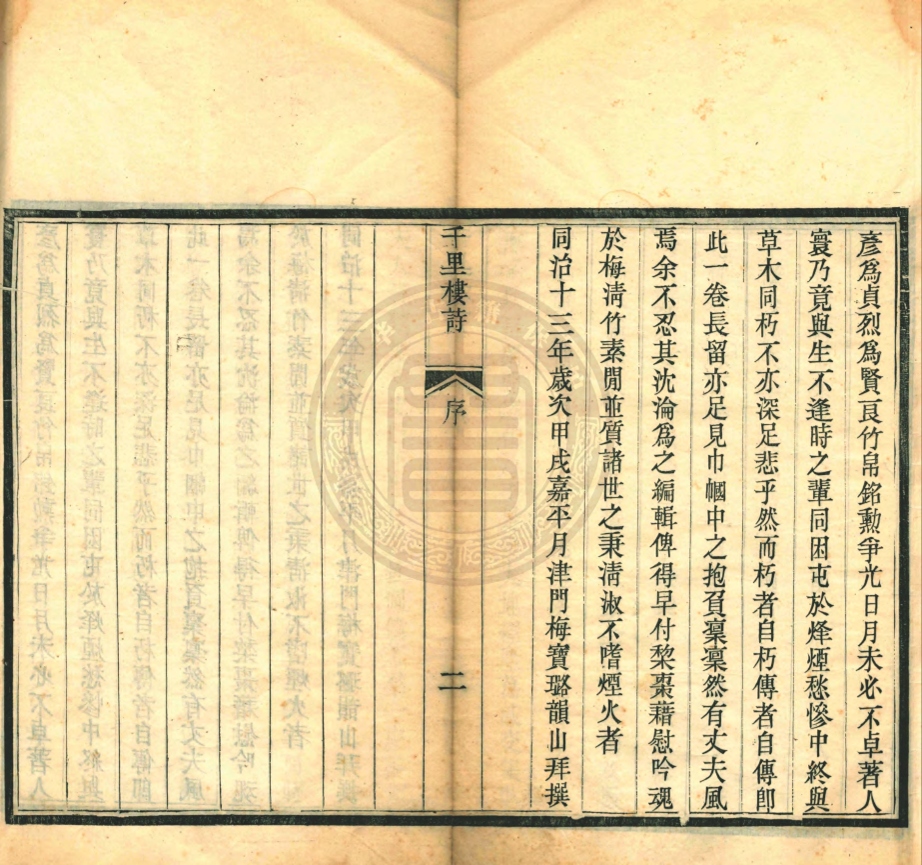 彥爲貞烈爲賢良竹帛銘勳爭光日月未必不卓著人
寰乃竟與生不逢時之輩同困屯於烽煙愁慘中終與
草木同朽不亦深足悲乎然而朽者自朽傳者自傳卽
此一卷長留亦足見巾幗中之抱負稟稟然有丈夫風
焉余不忍其沈淪爲之編輯俾得早付棃棗藉慰吟魂
於梅淸竹素閒並質諸世之秉淸淑不嗜煙火者
同治十三年歲次甲戌嘉平月津門梅寶璐韻山拜撰
千里樓詩 序 二